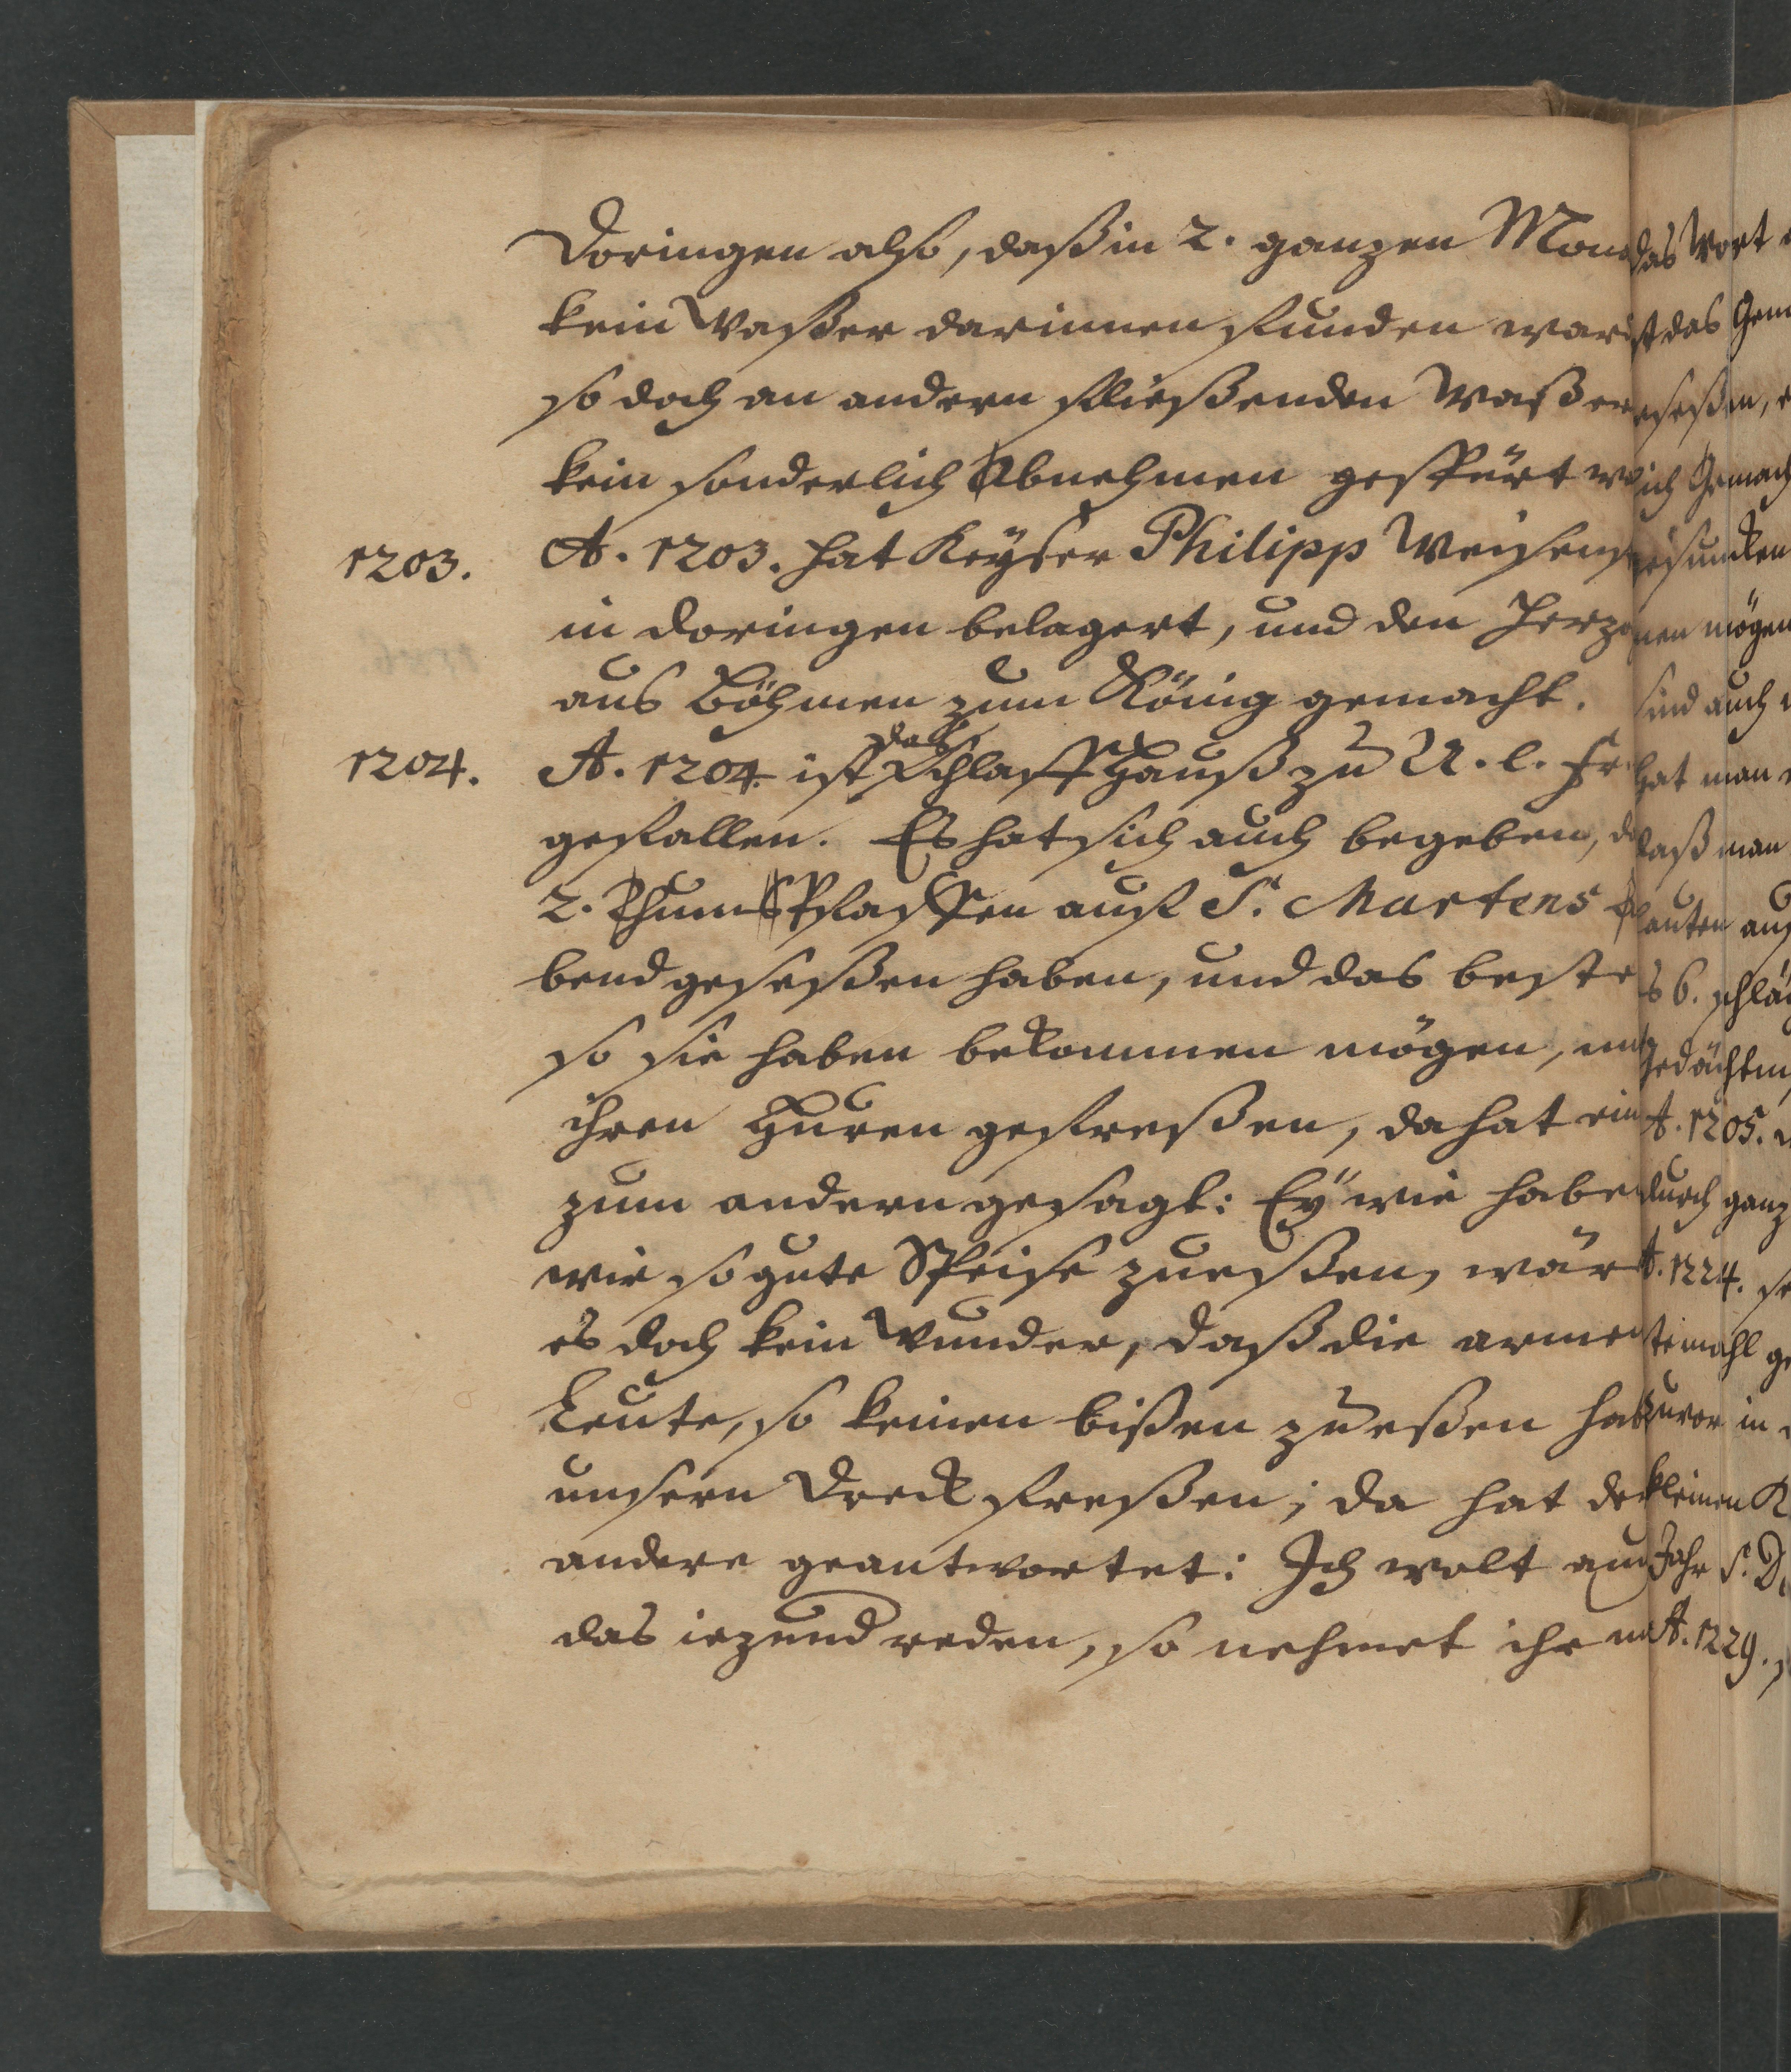 Doringen also, daß in 2. ganzen Mon
kein Waßer darinnen funden war
so doch an andern fließenden Waßer
kein sonderlich Abnehmen gespürt
1203. A. 1203. hat Keyser Philipp Weisens
in Doringen belagert, und den Herzo
aus Böhmen zum König gemacht.
1204. A. 1204. ist das Schlaffhauß zu U. l. Fr
gefallen. Es hat sich auch begeben,
2. Thum Pfaffen auf S. Martens
bend geseßen haben, und das beste
so sie haben bekommen mögen, mit
ihren Huren gefreßen, da hat ein
zum andern gesagt: Ey wie habe
wir so gute Speise zu eßen, wär
es doch kein Wunder, daß die armen
Leute, so keinen bißen zu eßen hab
unsern Dreck freßen; da hat der
andere geantwortet: Ich wolt auch
das iezund reden, so nehmet ihr
das Wort
ist das Gem
eseßen,
ich Gemach
esunden
nen mögen
sind auch
hat man
daß man
lauten auf
6. schlä
gedächtni
A. 1205.
durch ganz
A. 1224.
temahl ge
zuvor in
kleinen K
Jahr S. D
A. 1229.